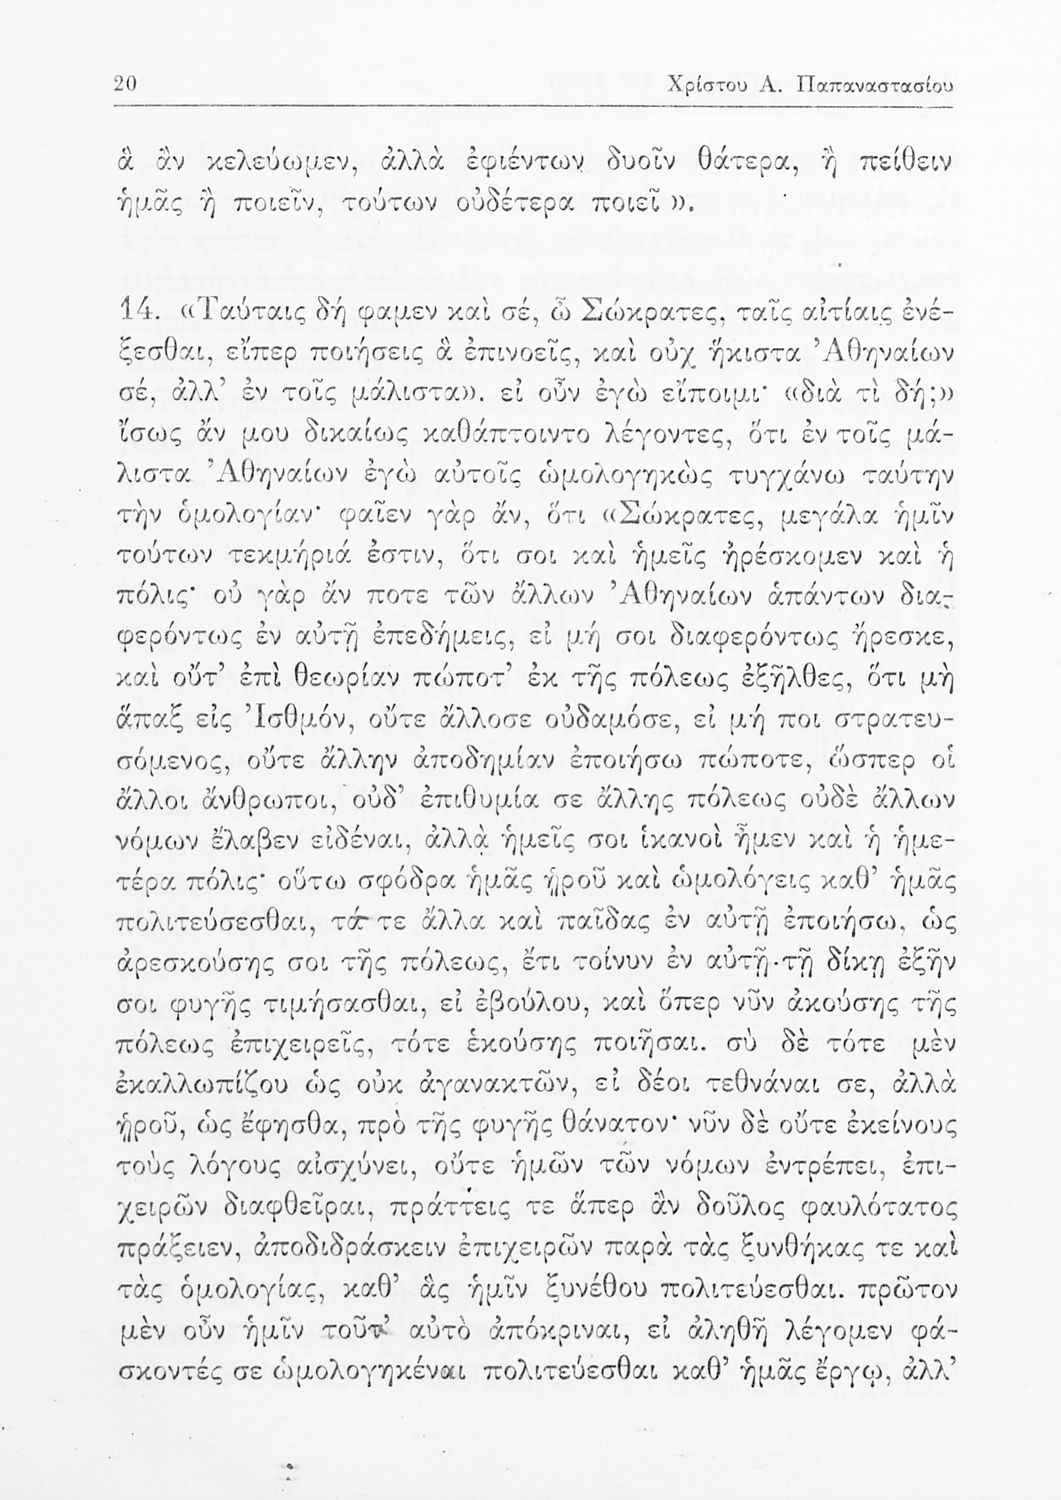 20 Χρίστου Α. Παπαναστασίου
ἃ ἂν κελεύωμεν, ἀλλὰ ἐφιέντων δυοῖν θάτερα, ἢ πείθειν
ἡμᾶς ἢ ποιεῖν, τούτων οὐδέτερα ποιεῖ».
14. «Ταύταις δή φαμεν καὶ σέ, ὦ Σώκρατες, ταῖς αἰτίαις ἐνέ-
ξεσθαι, εἴπερ ποιήσεις ἃ ἐπινοεῖς, καὶ οὐχ ἥκιστα Ἀθηναίων
σέ, ἀλλ’ ἐν τοῖς μάλιστα». εἰ οὖν ἐγὼ εἴποιμι· «διὰ τὶ δή;»
ἴσως ἄν μου δικαίως καθάπτοιντο λέγοντες, ὅτι ἐν τοῖς μά-
λιστα Ἀθηναίων ἐγὼ αὐτοῖς ὡμολογηκὼς τυγχάνω ταύτην
τὴν ὁμολογίαν· φαῖεν γὰρ ἄν, ὅτι «Σώκρατες, μεγάλα ἡμῖν
τούτων τεκμήριά ἐστιν, ὅτι σοι καὶ ἡμεῖς ἠρέσκομεν καὶ ἡ
πόλις· οὐ γὰρ ἄν ποτε τῶν ἄλλων Ἀθηναίων ἁπάντων δια-
φερόντως ἐν αὐτῇ ἐπεδήμεις, εἰ μή σοι διαφερόντως ἤρεσκε,
καὶ οὔτ’ ἐπὶ θεωρίαν πώποτ’ ἐκ τῆς πόλεως ἐξῆλθες, ὅτι μὴ
ἅπαξ εἰς Ἰσθμόν, οὔτε ἄλλοσε οὐδαμόσε, εἰ μή ποι στρατευ-
σόμενος, οὔτε ἄλλην ἀποδημίαν ἐποιήσω πώποτε, ὥσπερ οἱ
ἄλλοι ἄνθρωποι, οὐδ’ ἐπιθυμία σε ἄλλης πόλεως οὐδὲ ἄλλων
νόμων ἔλαβεν εἰδέναι, ἀλλὰ ἡμεῖς σοι ἱκανοὶ ἦμεν καὶ ἡ ἡμε-
τέρα πόλις· οὕτω σφόδρα ἡμᾶς ᾑροῦ καὶ ὡμολόγεις καθ’ ἡμᾶς
πολιτεύσεσθαι, τά τε ἄλλα καὶ παῖδας ἐν αὐτῇ ἐποιήσω, ὡς
ἀρεσκούσης σοι τῆς πόλεως, ἔτι τοίνυν ἐν αὐτῇ τῇ δίκῃ ἐξῆν
σοι φυγῆς τιμήσασθαι, εἰ ἐβούλου, καὶ ὅπερ νῦν ἀκούσης τῆς
πόλεως ἐπιχειρεῖς, τότε ἑκούσης ποιῆσαι. σὺ δὲ τότε μὲν
ἐκαλλωπίζου ὡς οὐκ ἀγανακτῶν, εἰ δέοι τεθνάναι σε, ἀλλὰ
ᾑροῦ, ὡς ἔφησθα, πρὸ τῆς φυγῆς θάνατον· νῦν δὲ οὔτε ἐκείνους
τοὺς λόγους αἰσχύνει, οὔτε ἡμῶν τῶν νόμων ἐντρέπει, ἐπι-
χειρῶν διαφθεῖραι, πράττεις τε ἅπερ ἂν δοῦλος φαυλότατος
πράξειεν, ἀποδιδράσκειν ἐπιχειρῶν παρὰ τὰς ξυνθήκας τε καὶ
τὰς ὁμολογίας, καθ’ ἃς ἡμῖν ξυνέθου πολιτεύεσθαι. πρῶτον
μὲν οὖν ἡμῖν τοῦτ’ αὐτὸ ἀπόκριναι, εἰ ἀληθῆ λέγομεν φά-
σκοντές σε ὡμολογηκέναι πολιτεύεσθαι καθ’ ἡμᾶς ἔργῳ, ἀλλ’